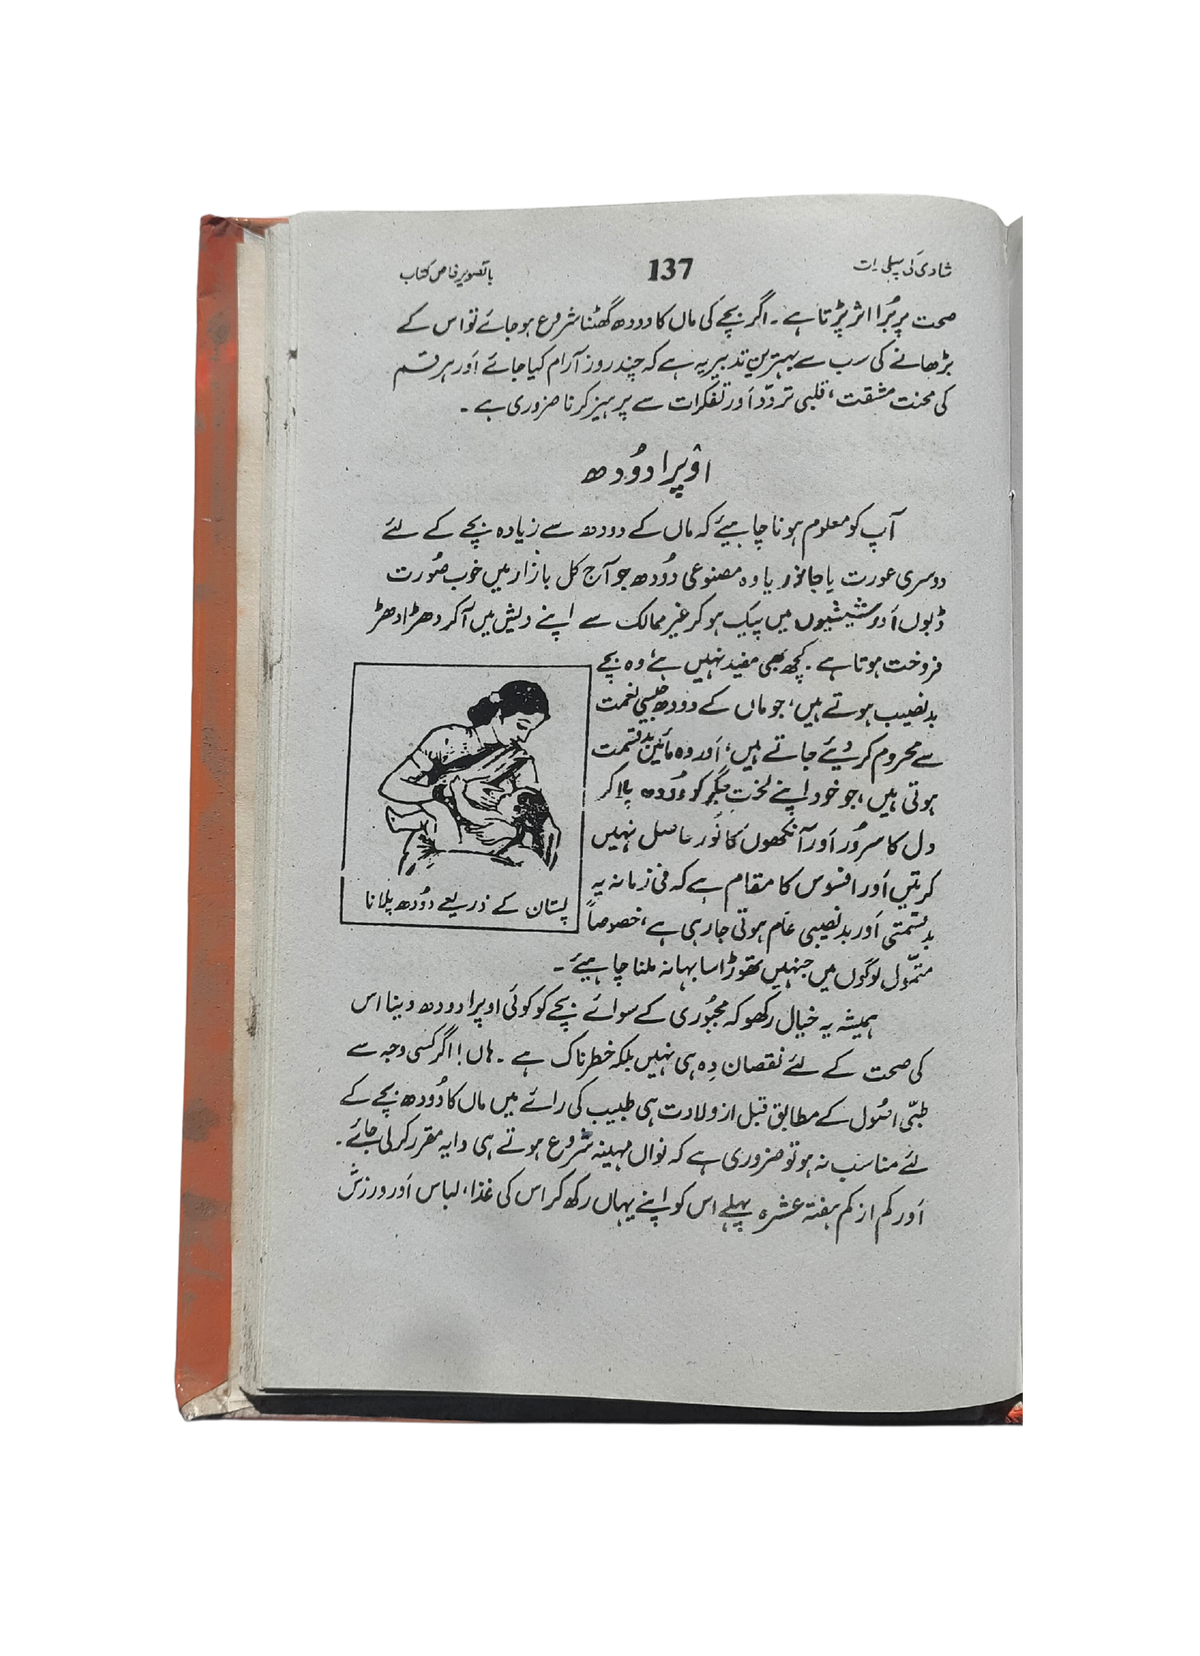 شادی کی پہلی رات
137
با تصویر خاص کتاب
صحت پر بُرا اثر پڑتا ہے۔ اگر بچے کی ماں کا دودھ گھٹنا شروع ہو جائے تو اس کے
بڑھانے کی سب سے بہترین تدبیر یہ ہے کہ چند روز آرام کیا جائے اَور ہر قسم
کی محنت مشقت، قلبی تردّد اَور تفکرات سے پرہیز کرنا ضروری ہے۔
اوپرا دُودھ
آپ کو معلوم ہونا چاہیئے کہ ماں کے دودھ سے زیادہ بچے کے لئے
دوسری عورت یا جانور یا وہ مصنوعی دُودھ جو آج کل بازار میں خوب صُورت
ڈبوں اَور شیشیوں میں پیک ہو کر غیر ممالک سے اپنے دیش میں آکر دھڑا دھڑ
فروخت ہوتا ہے۔ کچھ بھی مفید نہیں ہے وہ بچے
بدنصیب ہوتے ہیں، جو ماں کے دودھ جیسی نعمت
سے محروم کر دیئے جاتے ہیں، اَور وہ مائیں بدقسمت
ہوتی ہیں، جو خود اپنے لختِ جگر کو دُودھ پلا کر
دل کا سرُور اَور آنکھوں کا نُور حاصل نہیں
کرتیں اَور افسوس کا مقام ہے کہ فی زمانہ یہ
بدقسمتی اَور بدنصیبی عام ہوتی جا رہی ہے، خصوصاً
متموّل لوگوں میں جنہیں تھوڑا سا بہانہ ملنا چاہیئے۔
پستان کے ذریعے دُودھ پلانا
ہمیشہ یہ خیال رکھو کہ مجبُوری کے سوائے بچے کو کوئی اوپرا دودھ دینا اس
کی صحت کے لئے نقصان دِہ ہی نہیں بلکہ خطرناک ہے۔ ہاں! اگر کسی وجہ سے
طبّی اصُول کے مطابق قبل از ولادت ہی طبیب کی رائے میں ماں کا دُودھ بچے کے
لئے مناسب نہ ہو تو ضروری ہے کہ نواں مہینہ شروع ہوتے ہی دایہ مقرر کر لی جائے۔
اَور کم از کم ہفتہ عشرہ پہلے اس کو اپنے یہاں رکھ کر اس کی غذا، لباس اَور ورزش